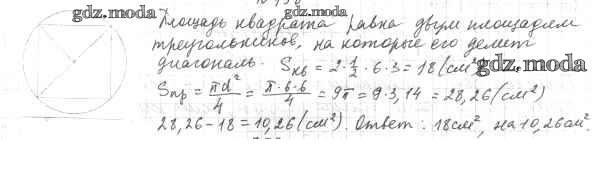 gdz.moda
gdz.moda
Площадь квадрата равна двум площадям
треугольников, на которые его делит
диагональ. Sкв = 2·1/2·6·3 = 18 (см²)
gdz.moda
Sкр = πd²/4 = π·6·6/4 = 9π = 9·3,14 = 28,26 (см²)
28,26 - 18 = 10,26 (см²). Ответ: 18 см², на 10,26 см².